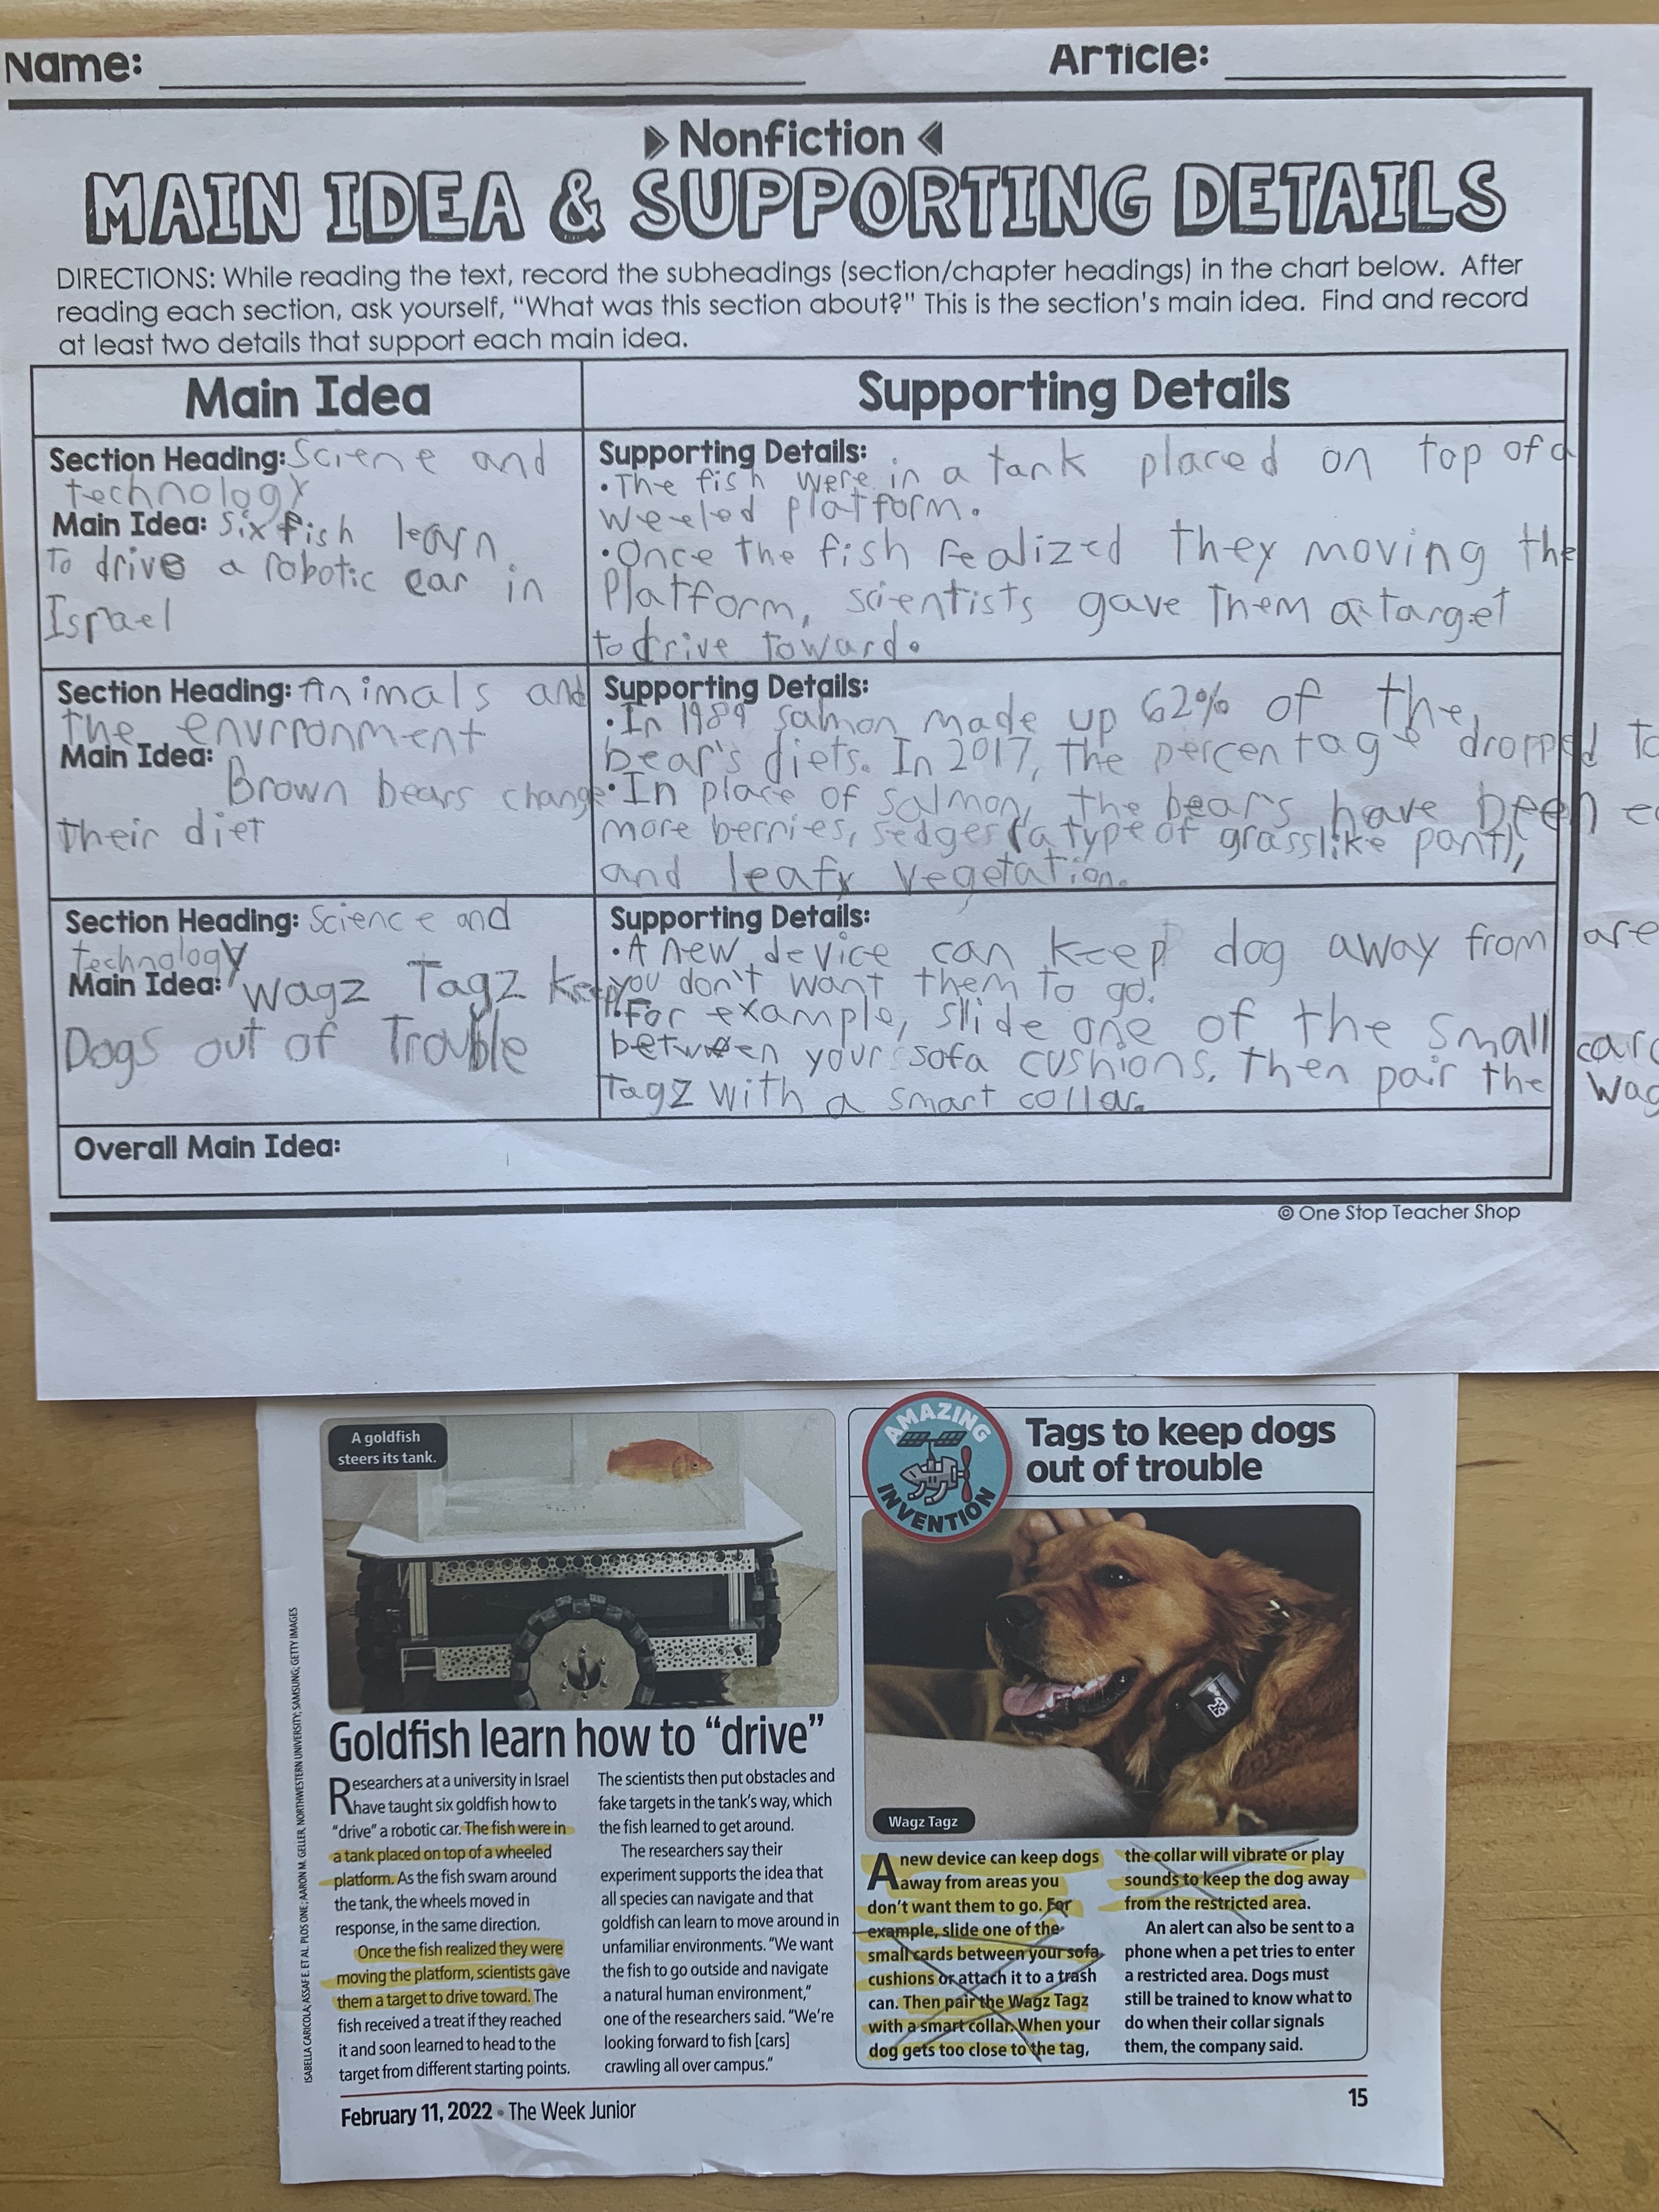 Name:
Article:
Nonfiction
MAIN IDEA & SUPPORTING DETAILS
DIRECTIONS: While reading the text, record the subheadings (section/chapter headings) in the chart below. After
reading each section, ask yourself, "What was this section about?" This is the section's main idea. Find and record
at least two details that support each main idea.
Main Idea
Supporting Details
Section Heading: Sciene and
technology
Main Idea: Six fish learn
To drive a robotic car in
Israel
Supporting Details:
• The fish were in a tank placed on top of a
weeled platform.
• Once the fish realized they moving the
Platform, scientists gave Them a target
to drive toward.
Section Heading: Animals and
the envrronment
Main Idea:
Brown bears change
their diet
Supporting Details:
• In 1989 salmon made up 62% of the
bear's diets. In 2017, the percentage dropped to
• In place of salmon, the bears have been
more berries, sedges (a type of grasslike pantl),
and leafy vegetation.
Section Heading: Science and
technology
Main Idea: Wagz Tagz keep
Dogs out of Trouble
Supporting Details:
• A new device can keep dog away from are
you don't want them to go.
• For example, slide one of the small
between your sofa cushions. Then pair the Wag
Tagz with a smart collar.
Overall Main Idea:
© One Stop Teacher Shop
A goldfish
steers its tank.
ISABELLA CARICOLA; ASSAF E. ET AL. PLOS ONE; AARON M. GELLER, NORTHWESTERN UNIVERSITY; SAMSUNG; GETTY IMAGES
Goldfish learn how to "drive"
Researchers at a university in Israel
have taught six goldfish how to
"drive" a robotic car. The fish were in
a tank placed on top of a wheeled
platform. As the fish swam around
the tank, the wheels moved in
response, in the same direction.
Once the fish realized they were
moving the platform, scientists gave
them a target to drive toward. The
fish received a treat if they reached
it and soon learned to head to the
target from different starting points.
The scientists then put obstacles and
fake targets in the tank's way, which
the fish learned to get around.
The researchers say their
experiment supports the idea that
all species can navigate and that
goldfish can learn to move around in
unfamiliar environments. "We want
the fish to go outside and navigate
a natural human environment,"
one of the researchers said. "We're
looking forward to fish [cars]
crawling all over campus."
AMAZING
INVENTION
Tags to keep dogs
out of trouble
Wagz Tagz
A new device can keep dogs
away from areas you
don't want them to go. For
example, slide one of the
small cards between your sofa
cushions or attach it to a trash
can. Then pair the Wagz Tagz
with a smart collar. When your
dog gets too close to the tag,
the collar will vibrate or play
sounds to keep the dog away
from the restricted area.
An alert can also be sent to a
phone when a pet tries to enter
a restricted area. Dogs must
still be trained to know what to
do when their collar signals
them, the company said.
February 11, 2022 • The Week Junior
15